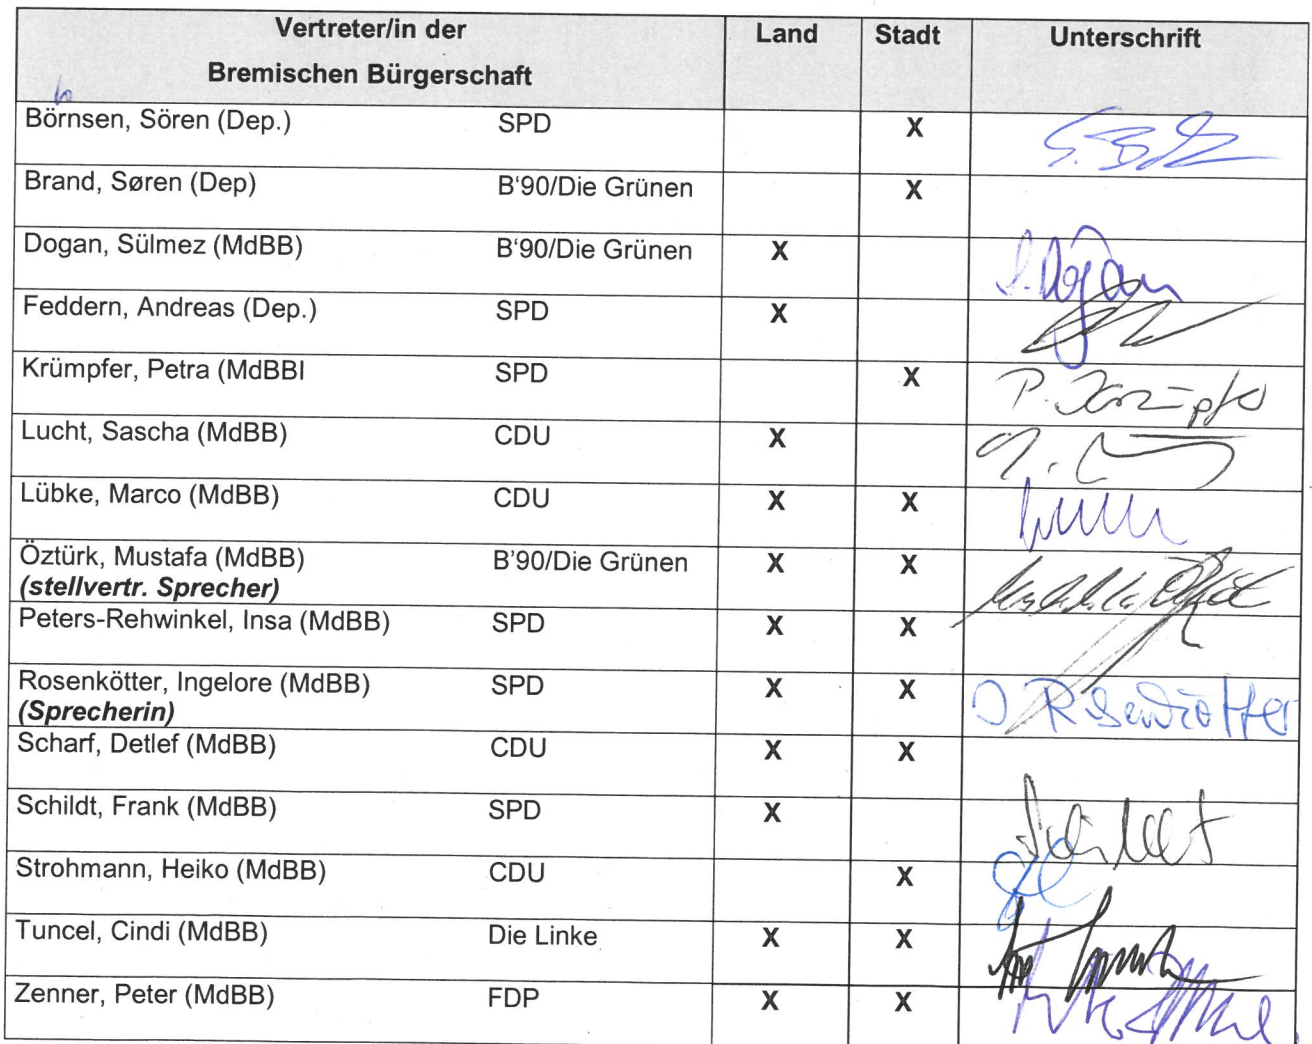 Vertreter/in der Land Stadt Unterschrift
Bremischen Bürgerschaft
Börnsen, Sören (Dep.) SPD X
Brand, Søren (Dep) B‘90/Die Grünen X
Dogan, Sülmez (MdBB) B‘90/Die Grünen X S. Dogan
Feddern, Andreas (Dep.) SPD X
Krümpfer, Petra (MdBBI SPD X P. Krümpfer
Lucht, Sascha (MdBB) CDU X
Lübke, Marco (MdBB) CDU X X
Öztürk, Mustafa (MdBB) B’90/Die Grünen X X
(stellvertr. Sprecher)
Peters-Rehwinkel, Insa (MdBB) SPD X X
Rosenkötter, Ingelore (MdBB) SPD X X I. Rosenkötter
(Sprecherin)
Scharf, Detlef (MdBB) CDU X X
Schildt, Frank (MdBB) SPD X Schildt
Strohmann, Heiko (MdBB) CDU X
Tuncel, Cindi (MdBB) Die Linke X X
Zenner, Peter (MdBB) FDP X X